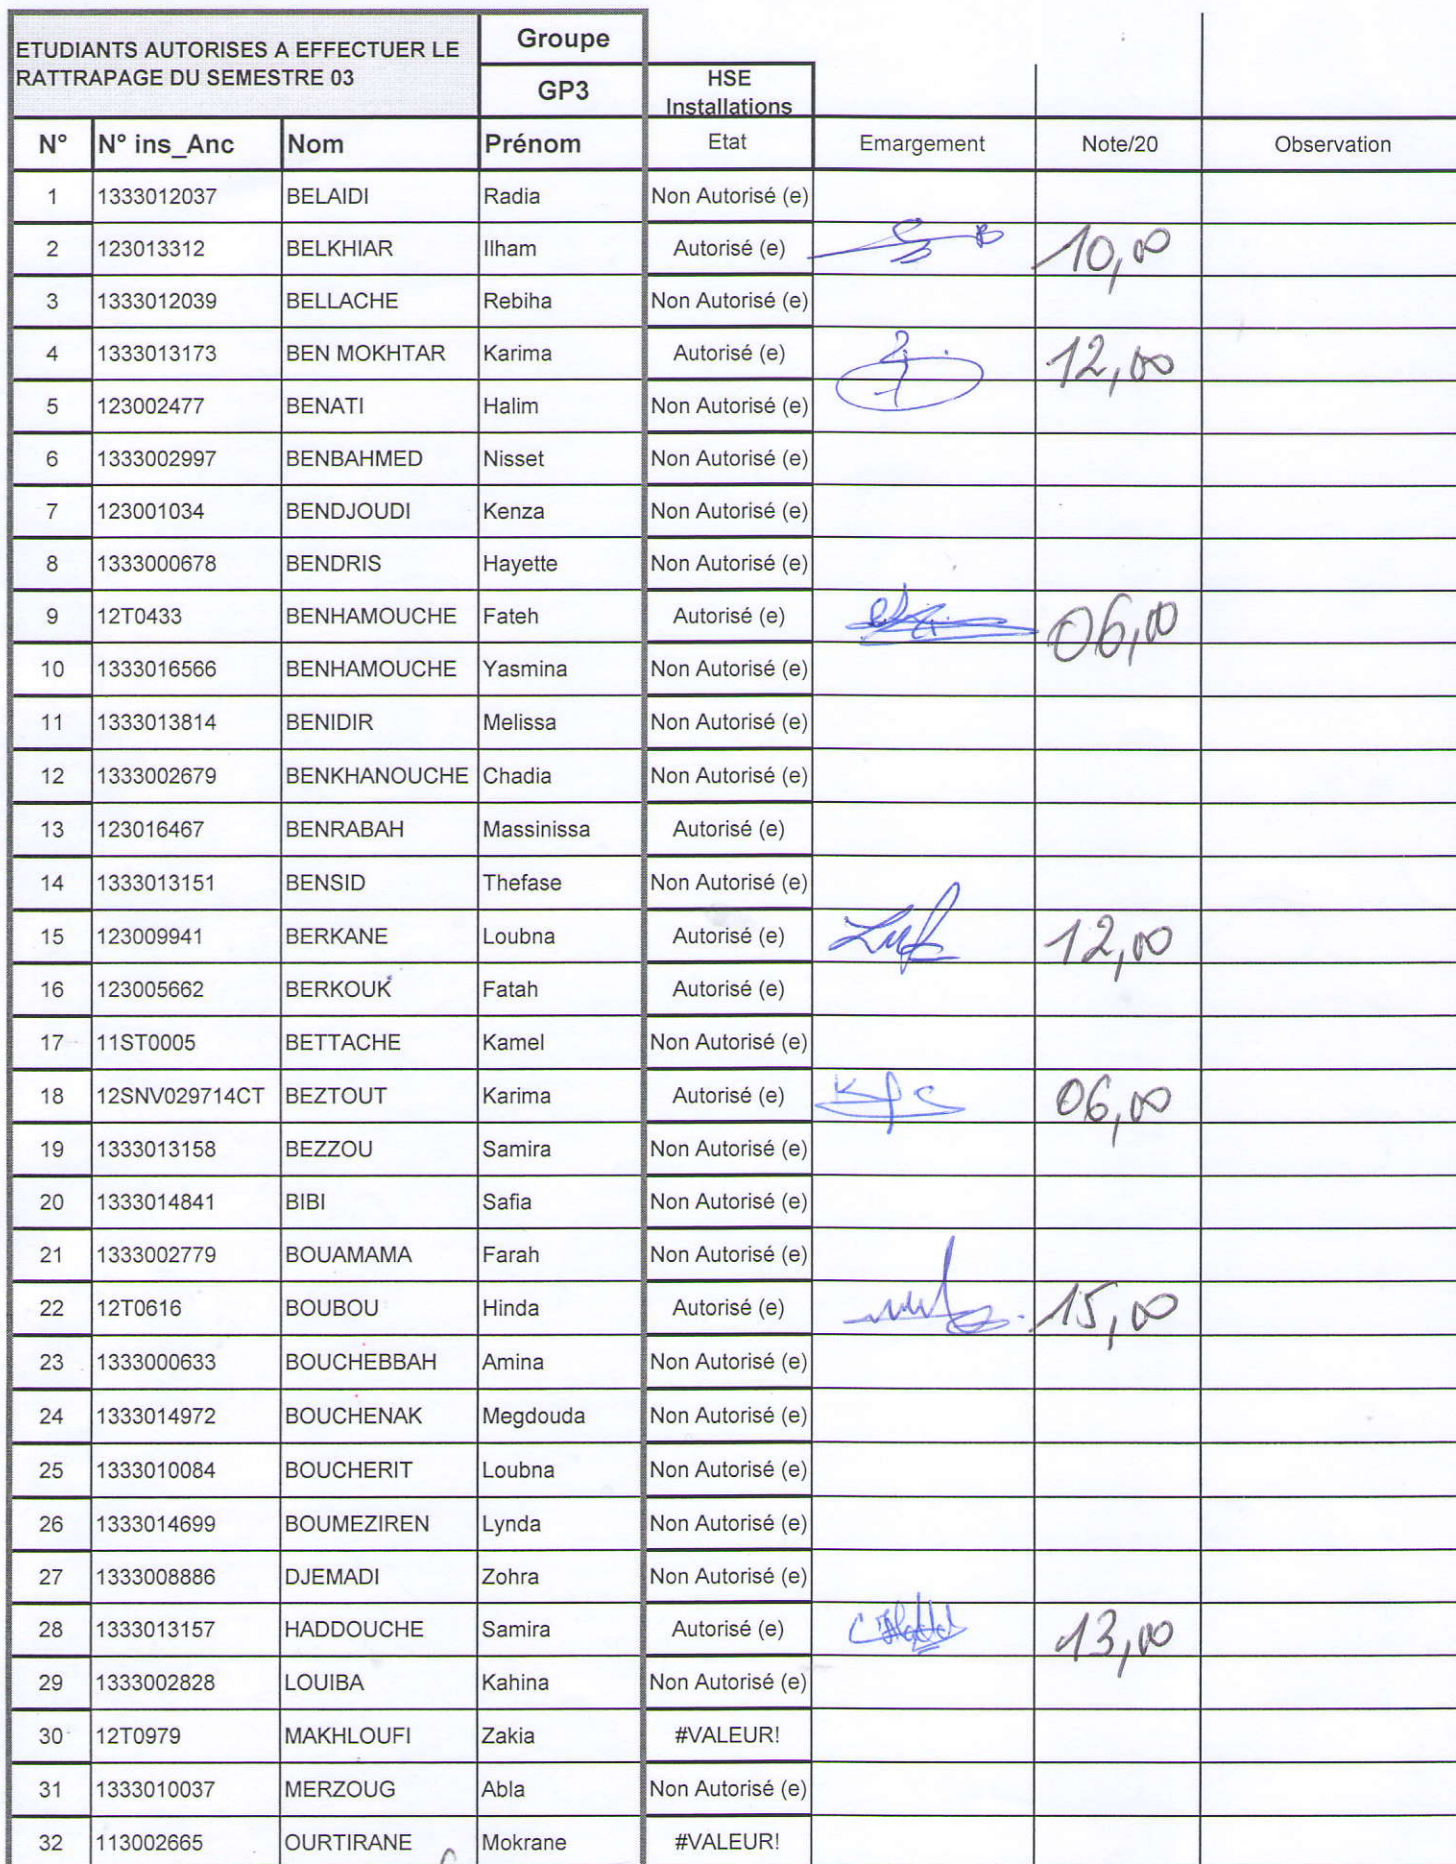 ETUDIANTS AUTORISES A EFFECTUER LE RATTRAPAGE DU SEMESTRE 03
Groupe
GP3 HSE Installations
N° N° ins_Anc Nom Prénom Etat Emargement Note/20 Observation
1 1333012037 BELAIDI Radia Non Autorisé (e)
2 123013312 BELKHIAR Ilham Autorisé (e) 10,00
3 1333012039 BELLACHE Rebiha Non Autorisé (e)
4 1333013173 BEN MOKHTAR Karima Autorisé (e) 12,00
5 123002477 BENATI Halim Non Autorisé (e)
6 1333002997 BENBAHMED Nisset Non Autorisé (e)
7 123001034 BENDJOUDI Kenza Non Autorisé (e)
8 1333000678 BENDRIS Hayette Non Autorisé (e)
9 12T0433 BENHAMOUCHE Fateh Autorisé (e) 06,00
10 1333016566 BENHAMOUCHE Yasmina Non Autorisé (e)
11 1333013814 BENIDIR Melissa Non Autorisé (e)
12 1333002679 BENKHANOUCHE Chadia Non Autorisé (e)
13 123016467 BENRABAH Massinissa Autorisé (e)
14 1333013151 BENSID Thefase Non Autorisé (e)
15 123009941 BERKANE Loubna Autorisé (e) 12,00
16 123005662 BERKOUK Fatah Autorisé (e)
17 11ST0005 BETTACHE Kamel Non Autorisé (e)
18 12SNV029714CT BEZTOUT Karima Autorisé (e) 06,00
19 1333013158 BEZZOU Samira Non Autorisé (e)
20 1333014841 BIBI Safia Non Autorisé (e)
21 1333002779 BOUAMAMA Farah Non Autorisé (e)
22 12T0616 BOUBOU Hinda Autorisé (e) 15,00
23 1333000633 BOUCHEBBAH Amina Non Autorisé (e)
24 1333014972 BOUCHENAK Megdouda Non Autorisé (e)
25 1333010084 BOUCHERIT Loubna Non Autorisé (e)
26 1333014699 BOUMEZIREN Lynda Non Autorisé (e)
27 1333008886 DJEMADI Zohra Non Autorisé (e)
28 1333013157 HADDOUCHE Samira Autorisé (e) 13,00
29 1333002828 LOUIBA Kahina Non Autorisé (e)
30 12T0979 MAKHLOUFI Zakia #VALEUR!
31 1333010037 MERZOUG Abla Non Autorisé (e)
32 113002665 OURTIRANE Mokrane #VALEUR!